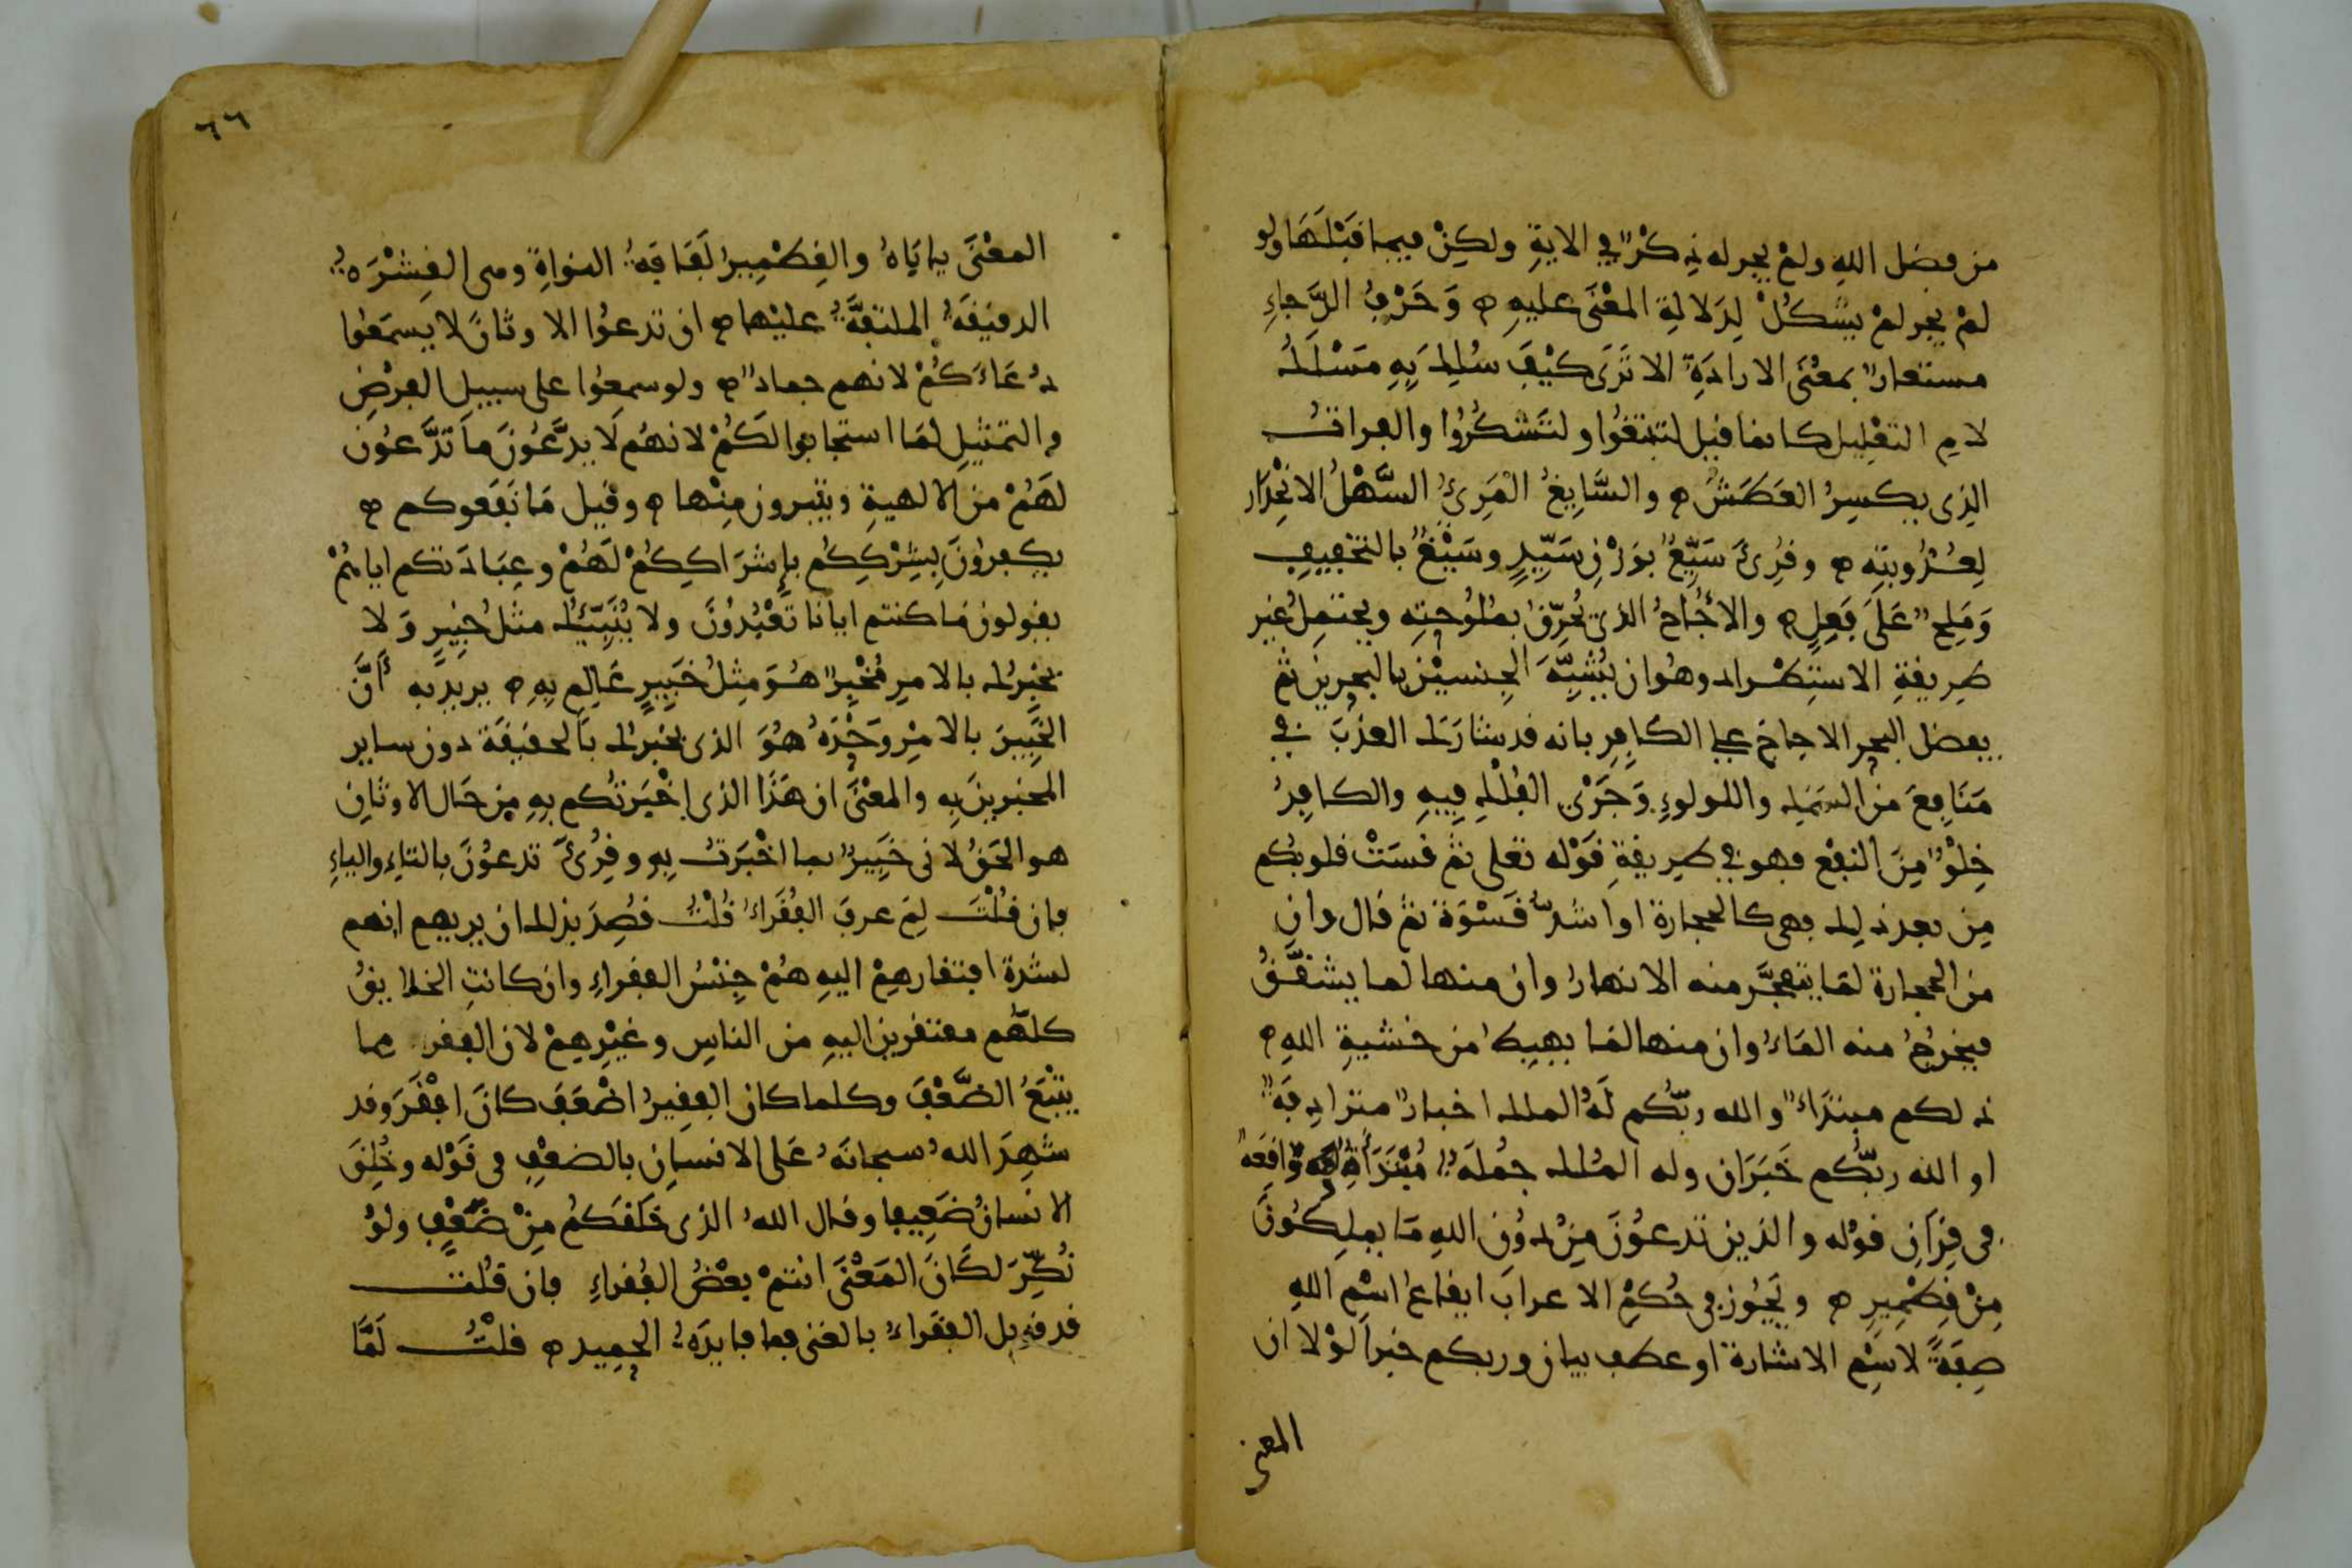 من فضل الله ولم يجر له ذكر في الاية ولكن فيما قبلها ولو
لم يجر لم يشكل لدلالة المعنى عليه ۞ وحرف الرجاء
مستعار بمعنى الارادة الا ترى كيف سلك به مسلك
لام التعليل كانما قيل لتبتغوا ولتشكروا والفرات
الذى يكسر العطش ۞ والسايغ المرئ السهل الانحدار
لعذوبته ۞ وقرئ سيغ بوزن سيد وسيغ بالتخفيف
وملح على فعل ۞ والاجاج الذى يحرق بملوحته ويحتمل غير
طريقة الاستطراد وهو ان يشبه الجنسين بالبحرين ثم
يفضل البحر الاجاج على الكافر بانه قد شارك العذب في
منافع من السمك واللولوء وجرى الفلك فيه والكافر
خلو من النفع فهو في طريقة قوله تعلى ثم قست قلوبكم
من بعد ذلك فهى كالحجارة او اشد قسوة ثم قال وان
من الحجارة لما يتفجر منه الانهار وان منها لما يشقق
فيخرج منه الماء وان منها لما يهبط من خشية الله ۞
ذلكم مبتداء والله ربكم له الملك اخبار مترادفة
او الله ربكم خبران وله الملك جملة مبتدأة واقعة
فى قران قوله والذين تدعون من دون الله ما يملكون
من قطمير ۞ ويجوز فى حكم الاعراب ايقاع اسم الله
صفة لاسم الاشارة او عطف بيان وربكم خبرا لولا ان
المعنى
٦٦
المعنى ياباه والقطمير لفافة النواة وهى القشرة
الدقيقة الملتفة عليها ۞ ان تدعوا الاوثان لا يسمعوا
دعاءكم لانهم جماد ۞ ولو سمعوا على سبيل الفرض
والتمثيل لما استجابوا لكم لانهم لا يدعون ما تدعون
لهم من الالهية ويتبرون منها ۞ وقيل ما نفعوكم ۞
يكفرون بشرككم باشراككم لهم وعبادتكم اياهم
يقولون ما كنتم ايانا تعبدون ولا ينبئك مثل خبير ولا
يخبرك بالامر مخبر هو مثل خبير عالم به ۞ يريد به أن
الخبير بالامر وحده هو الذى يخبرك بالحقيقة دون ساير
المخبرين به والمعنى ان هذا الذى اخبرتكم به من حال الاوثان
هو الحق لانى خبير بما اخبرت به وقرئ تدعون بالتاء والياء
فان قلت لم عرف الفقراء قلت قصد بذلك ان يريهم انهم
لشدة افتقارهم اليه هم جنس الفقراء وان كانت الخلايق
كلهم مفتقرين اليه من الناس وغيرهم لان الفقر مما
يتبع الضعف وكلما كان الفقير اضعف كان افقر وقد
شهد الله سبحانه على الانسان بالضعف فى قوله وخلق
الانسان ضعيفا وقال الله الذى خلقكم من ضعف ولو
نكر لكان المعنى انتم بعض الفقراء فان قلت
قد قوبل الفقراء بالغنى فما فايدة الحميد ۞ قلت لما